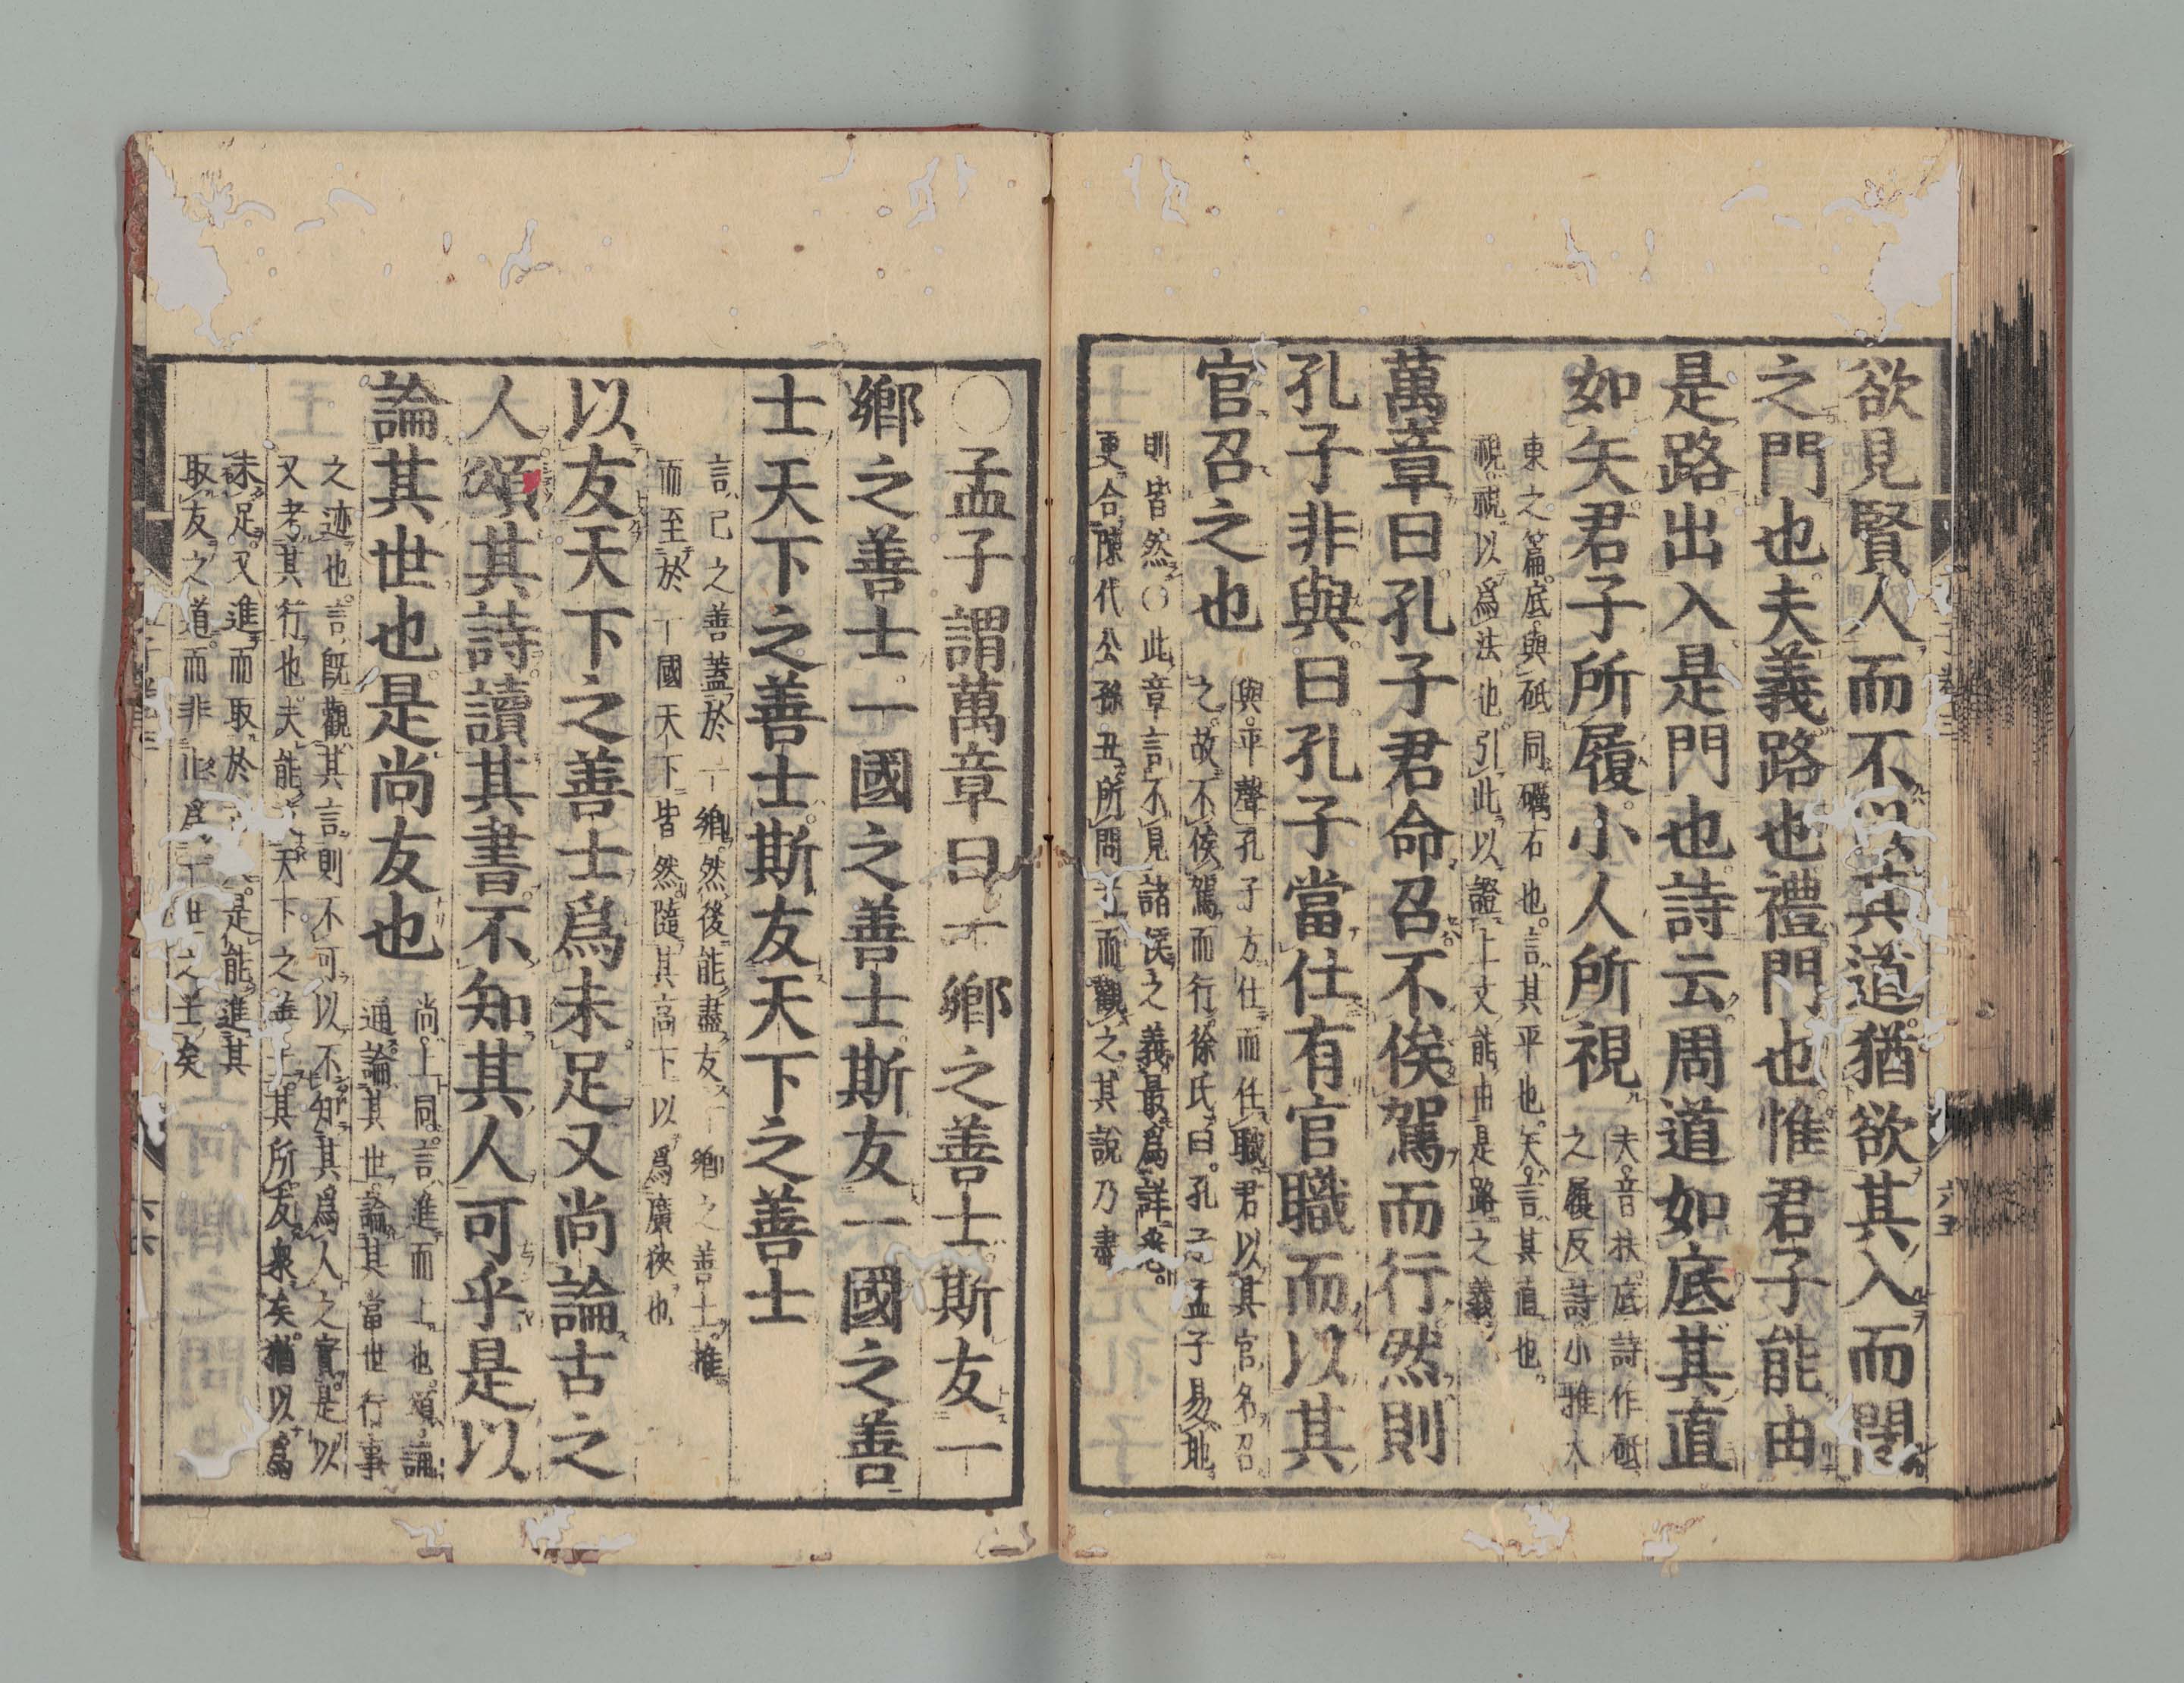 欲見賢人而不以其道猶欲其入而閉
之門也夫義路也禮門也惟君子能由
是路出入是門也詩云周道如底其直
如矢君子所履小人所視
夫音扶底詩作砥
之履反詩小雅大
東之篇底與砥同礪石也言其平也矢言其直也
視視以爲法也引此以證上文能由是路之義
萬章曰孔子君命召不俟駕而行然則
孔子非與曰孔子當仕有官職而以其
官召之也
與平聲孔子方仕而任職君以其官名召
之故不俟駕而行徐氏曰孔子孟子易地
則皆然○此章言不見諸侯之義最爲詳悉
更合陳代公孫丑所問者而觀之其說乃盡
○孟子謂萬章曰一鄉之善士斯友一
鄉之善士一國之善士斯友一國之善
士天下之善士斯友天下之善士
言己之善蓋於一鄉然後能盡友一鄉之善士推
而至於一國天下皆然隨其高下以爲廣狹也
以友天下之善士爲未足又尚論古之
人頌其詩讀其書不知其人可乎是以
論其世也是尚友也
尚上同言進而上也頌誦
通論其世論其當世行事
之迹也言既觀其言則不可以不知其爲人之實是以
又考其行也夫能友天下之善士其所友衆矣猶以爲
未足又進而取於是能進其
取友之道而非止爲一世之士矣